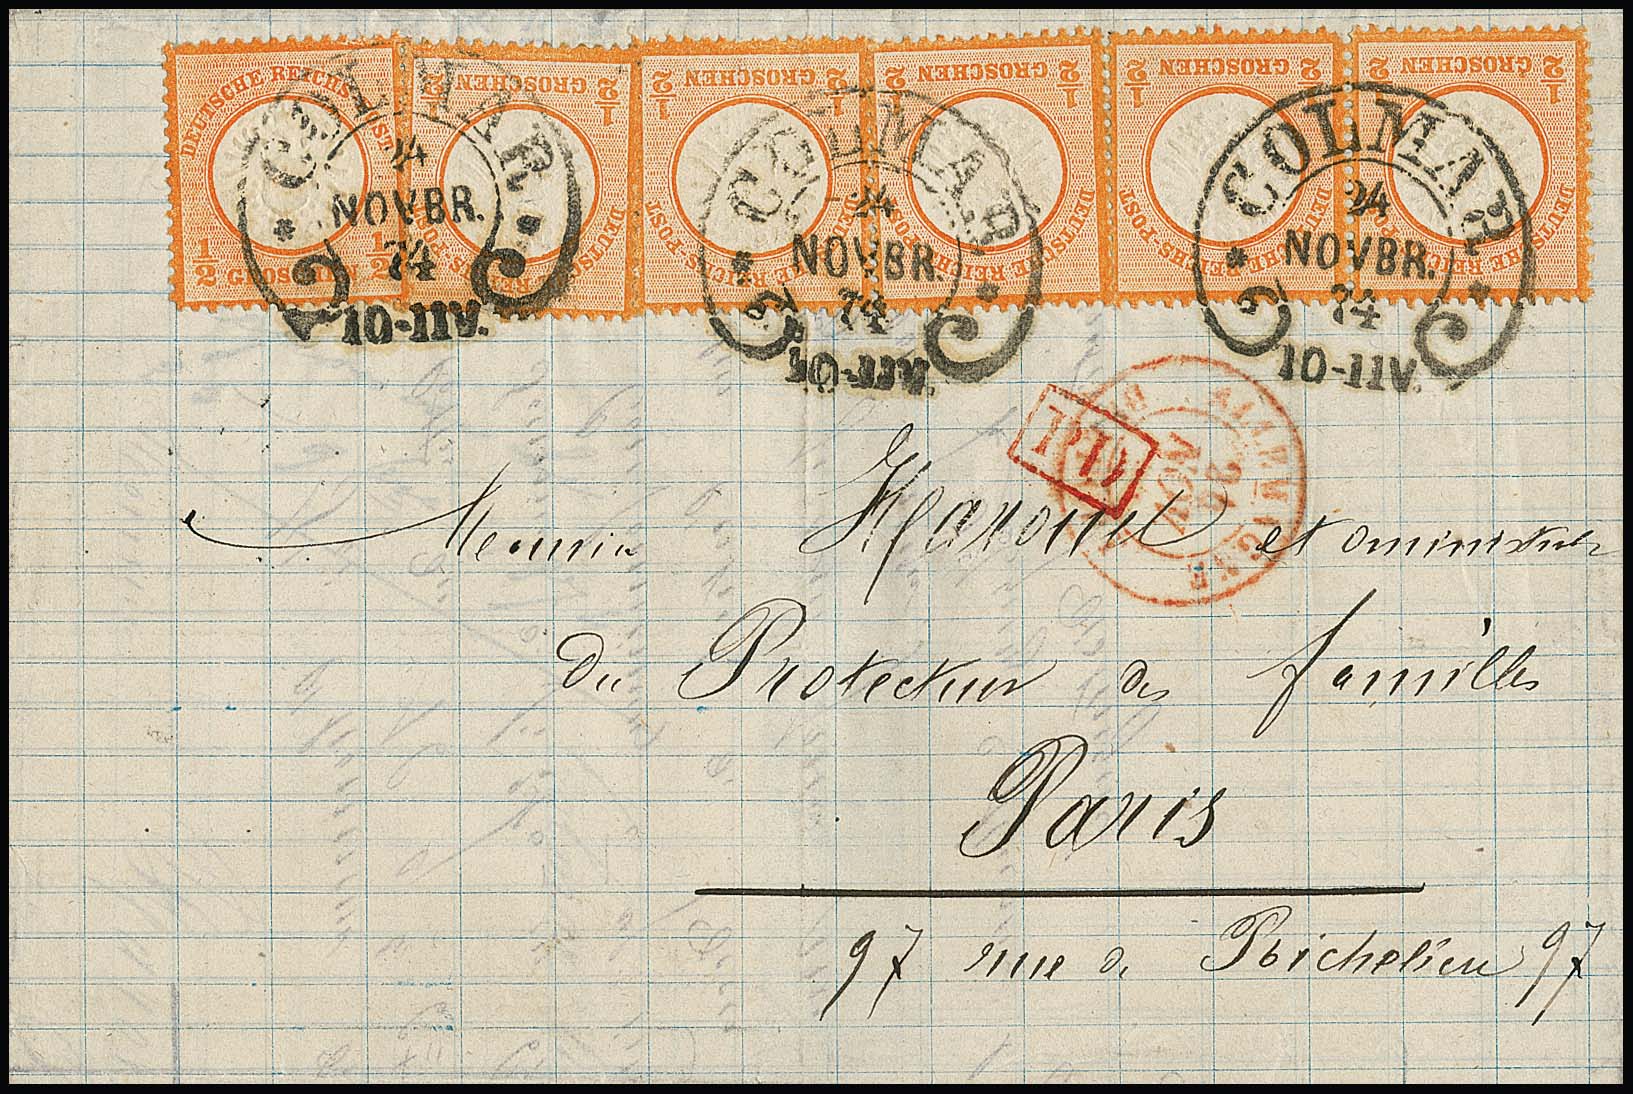 DEUTSCHE REICHS-POST ½ GROSCHEN ½
½ GROSCHEN ½ DEUTSCHE REICHS-POST
½ GROSCHEN ½ DEUTSCHE REICHS-POST
½ GROSCHEN ½ DEUTSCHE REICHS-POST
½ GROSCHEN ½ DEUTSCHE REICHS-POST
½ GROSCHEN ½ DEUTSCHE REICHS-POST
COLMAR
24
NOVBR.
74
10-11V.
COLMAR
24
NOVBR.
74
10-11V.
COLMAR
24
NOVBR.
74
10-11V.
P.D.
ALLEMAGNE
NOV
et
du Protecteur des familles
Paris
97 rue de Richelieu 97